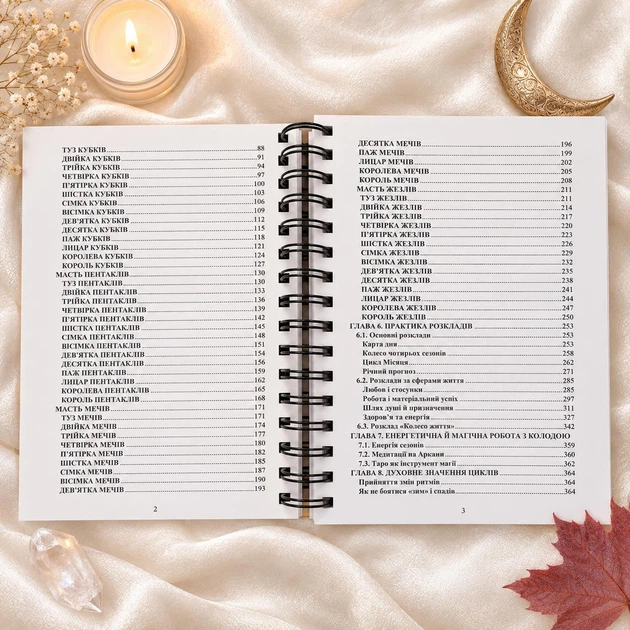 ТУЗ КУБКІВ 88
ДВІЙКА КУБКІВ 91
ТРІЙКА КУБКІВ 94
ЧЕТВІРКА КУБКІВ 97
П'ЯТІРКА КУБКІВ 100
ШІСТКА КУБКІВ 103
СІМКА КУБКІВ 106
ВІСІМКА КУБКІВ 109
ДЕВ'ЯТКА КУБКІВ 112
ДЕСЯТКА КУБКІВ 115
ПАЖ КУБКІВ 118
ЛИЦАР КУБКІВ 121
КОРОЛЕВА КУБКІВ 124
КОРОЛЬ КУБКІВ 127
МАСТЬ ПЕНТАКЛІВ 130
ТУЗ ПЕНТАКЛІВ 130
ДВІЙКА ПЕНТАКЛІВ 133
ТРІЙКА ПЕНТАКЛІВ 136
ЧЕТВІРКА ПЕНТАКЛІВ 139
П'ЯТІРКА ПЕНТАКЛІВ 142
ШІСТКА ПЕНТАКЛІВ 145
СІМКА ПЕНТАКЛІВ 148
ВІСІМКА ПЕНТАКЛІВ 151
ДЕВ'ЯТКА ПЕНТАКЛІВ 154
ДЕСЯТКА ПЕНТАКЛІВ 156
ПАЖ ПЕНТАКЛІВ 159
ЛИЦАР ПЕНТАКЛІВ 162
КОРОЛЕВА ПЕНТАКЛІВ 165
КОРОЛЬ ПЕНТАКЛІВ 168
МАСТЬ МЕЧІВ 171
ТУЗ МЕЧІВ 171
ДВІЙКА МЕЧІВ 174
ТРІЙКА МЕЧІВ 177
ЧЕТВІРКА МЕЧІВ 180
П'ЯТІРКА МЕЧІВ 182
ШІСТКА МЕЧІВ 185
СІМКА МЕЧІВ 187
ВІСІМКА МЕЧІВ 190
ДЕВ'ЯТКА МЕЧІВ 193
2
ДЕСЯТКА МЕЧІВ 196
ПАЖ МЕЧІВ 199
ЛИЦАР МЕЧІВ 202
КОРОЛЕВА МЕЧІВ 205
КОРОЛЬ МЕЧІВ 208
МАСТЬ ЖЕЗЛІВ 211
ТУЗ ЖЕЗЛІВ 211
ДВІЙКА ЖЕЗЛІВ 214
ТРІЙКА ЖЕЗЛІВ 217
ЧЕТВІРКА ЖЕЗЛІВ 220
П'ЯТІРКА ЖЕЗЛІВ 223
ШІСТКА ЖЕЗЛІВ 226
СІМКА ЖЕЗЛІВ 229
ВІСІМКА ЖЕЗЛІВ 232
ДЕВ'ЯТКА ЖЕЗЛІВ 235
ДЕСЯТКА ЖЕЗЛІВ 238
ПАЖ ЖЕЗЛІВ 241
ЛИЦАР ЖЕЗЛІВ 244
КОРОЛЕВА ЖЕЗЛІВ 247
КОРОЛЬ ЖЕЗЛІВ 250
ГЛАВА 6. ПРАКТИКА РОЗКЛАДІВ 253
6.1. Основні розклади 253
Карта дня 253
Колесо чотирьох сезонів 258
Цикл Місяця 262
Річний прогноз 271
6.2. Розклади за сферами життя 285
Любов і стосунки 285
Робота і матеріальний успіх 297
Шлях душі й призначення 311
Здоров'я та енергія 327
6.3. Розклад «Колесо життя» 342
ГЛАВА 7. ЕНЕРГЕТИЧНА Й МАГІЧНА РОБОТА З КОЛОДОЮ
7.1. Енергія сезонів 359
7.2. Медитації на Аркани 360
7.3. Таро як інструмент магії 362
ГЛАВА 8. ДУХОВНЕ ЗНАЧЕННЯ ЦИКЛІВ 364
Прийняття змін ритмів 364
Як не боятися «зим» і спадів 364
3